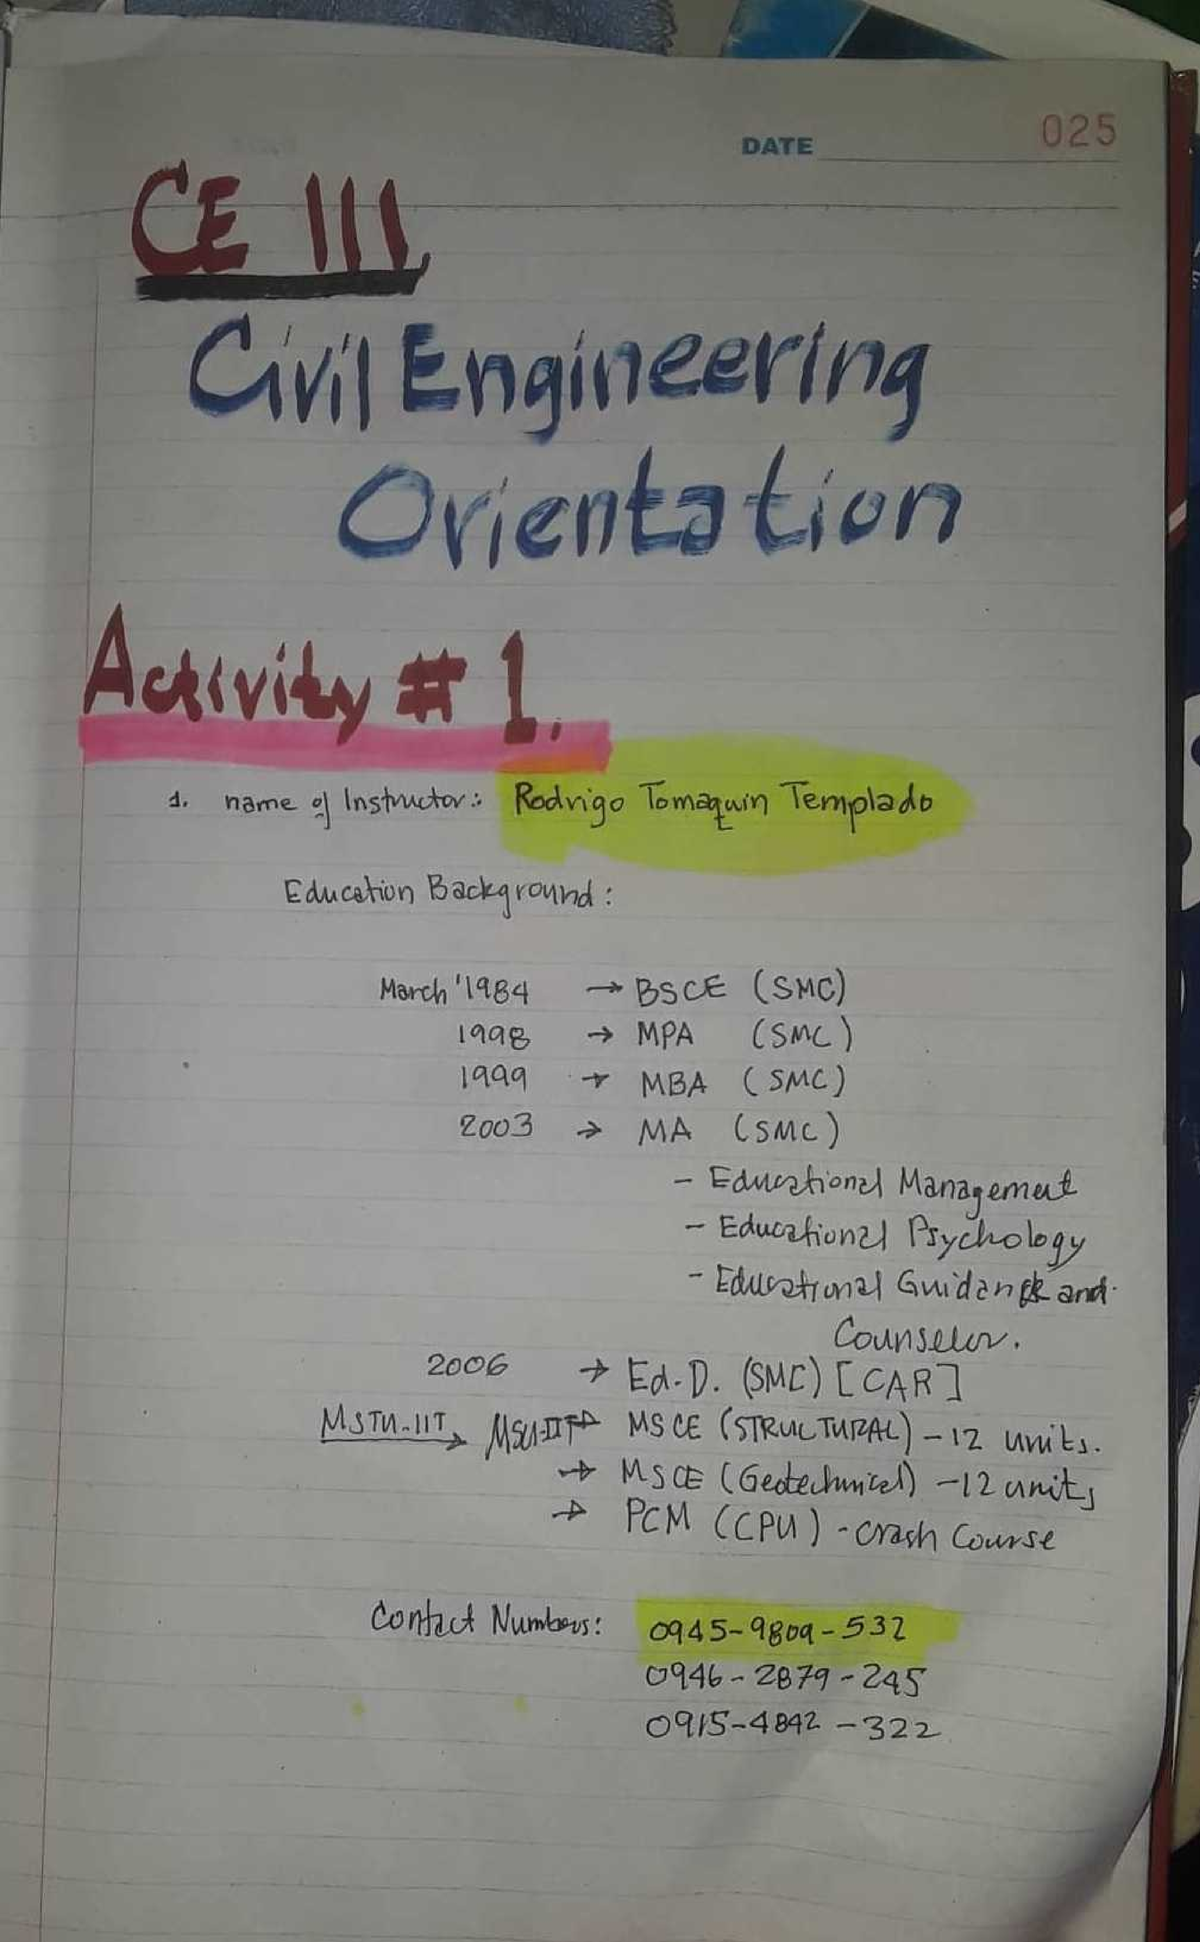 DATE 025
CE 111
Civil Engineering
Orientation
Activity # 1.
1. name of Instructor: Rodrigo Tomaquin Templado
Education Background:
March '1984 → BSCE (SMC)
1998 → MPA (SMC)
1999 → MBA (SMC)
2003 → MA (SMC)
- Educational Management
- Educational Psychology
- Educational Guidance and
Counselor.
2006 → Ed.D. (SMC) [CAR]
MSTU-IIT → MSU-IIT → MSCE (STRUCTURAL) - 12 units.
→ MSCE (Geotechnical) - 12 units
→ PCM (CPU) - crash Course
Contact Numbers: 0945-9809-532
0946-2879-245
0915-4842-322